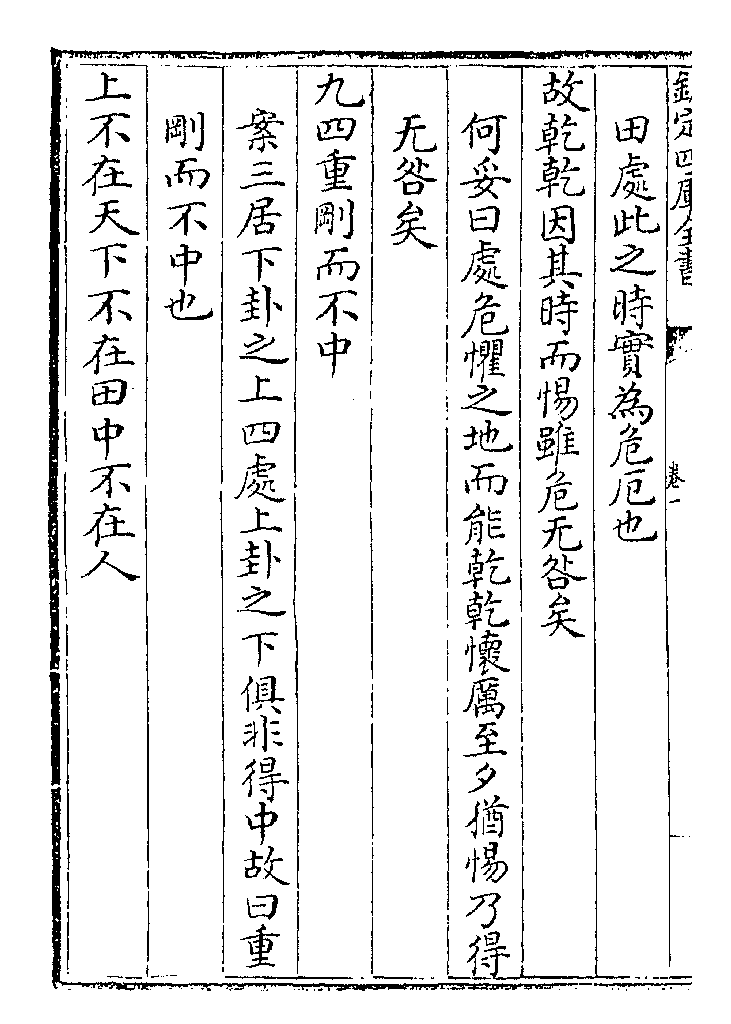 欽定四庫全書
卷一
田處此之時實為危厄也
故乾乾因其時而惕雖危无咎矣
何妥曰處危懼之地而能乾乾懷厲至夕猶惕乃得
无咎矣
九四重剛而不中
案三居下卦之上四處上卦之下俱非得中故曰重
剛而不中也
上不在天下不在田中不在人